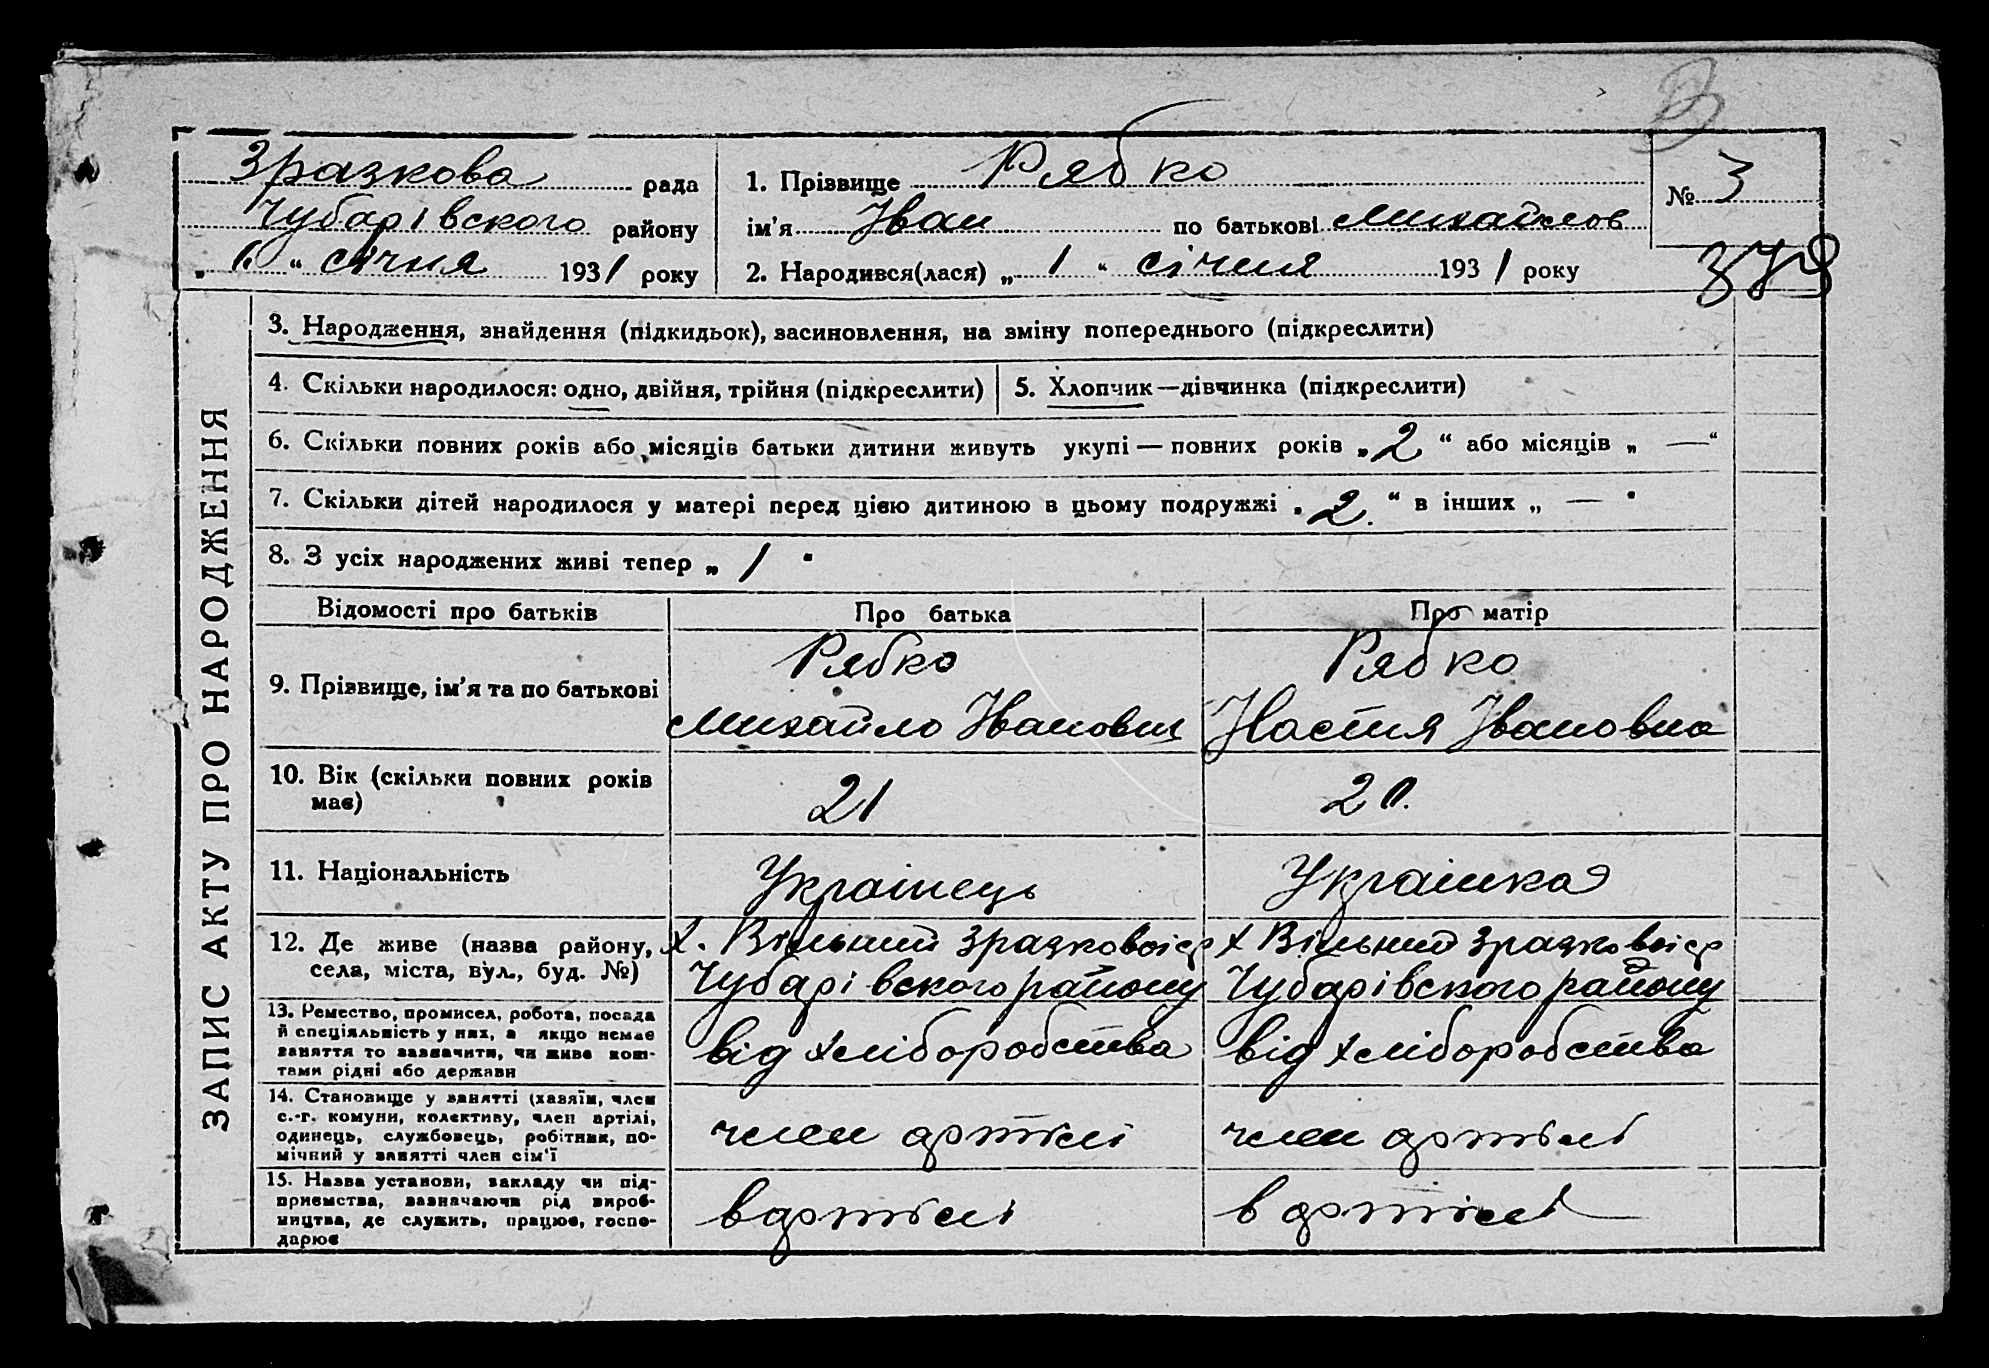 Зразкова рада
Чубарівского району
„ 6 “ січня 1931 року
1. Прізвище Рябко
ім’я Іван по батькові Михайлов
2. Народився(лася) „ 1 “ січня 1931 року
№ 3
379
ЗАПИС АКТУ ПРО НАРОДЖЕННЯ
3. Народження, знайдення (підкидьок), засиновлення, на зміну попереднього (підкреслити)
4. Скільки народилося: одно, двійня, трійня (підкреслити) 5. Хлопчик—дівчинка (підкреслити)
6. Скільки повних років або місяців батьки дитини живуть укупі — повних років „ 2 “ або місяців „ — “
7. Скільки дітей народилося у матері перед цією дитиною в цьому подружжі „ 2. “ в інших „ — “
8. З усіх народжених живі тепер „ 1 “
Відомості про батьків Про батька Про матір
9. Прізвище, ім’я та по батькові
Рябко
Михайло Іванович
Рябко
Настия Івановна
10. Вік (скільки повних років
має)
21
20.
11. Національність
Українець
Українка
12. Де живе (назва району,
села, міста, вул., буд. №)
х. Вільний Зразковоі ср
Чубарівского району
х Вільний Зразковоі ср
Чубарівского району
13. Ремество, промисел, робота, посада
й спеціяльність у них, а якщо немає
заняття то зазначити, чи живе кош-
тами рідні або держави
від хліборобства
від хліборобства
14. Становище у занятті (хазяїн, член
с.-г. комуни, колективу, член артілі,
одинець, службовець, робітник, по-
мічний у занятті член сім’ї
член артілі
член артілі
15. Назва установи, закладу чи під-
приємства, зазначаючи рід вироб-
ництва, де служить, працює, госпо-
дарює
в артілі
в артілі